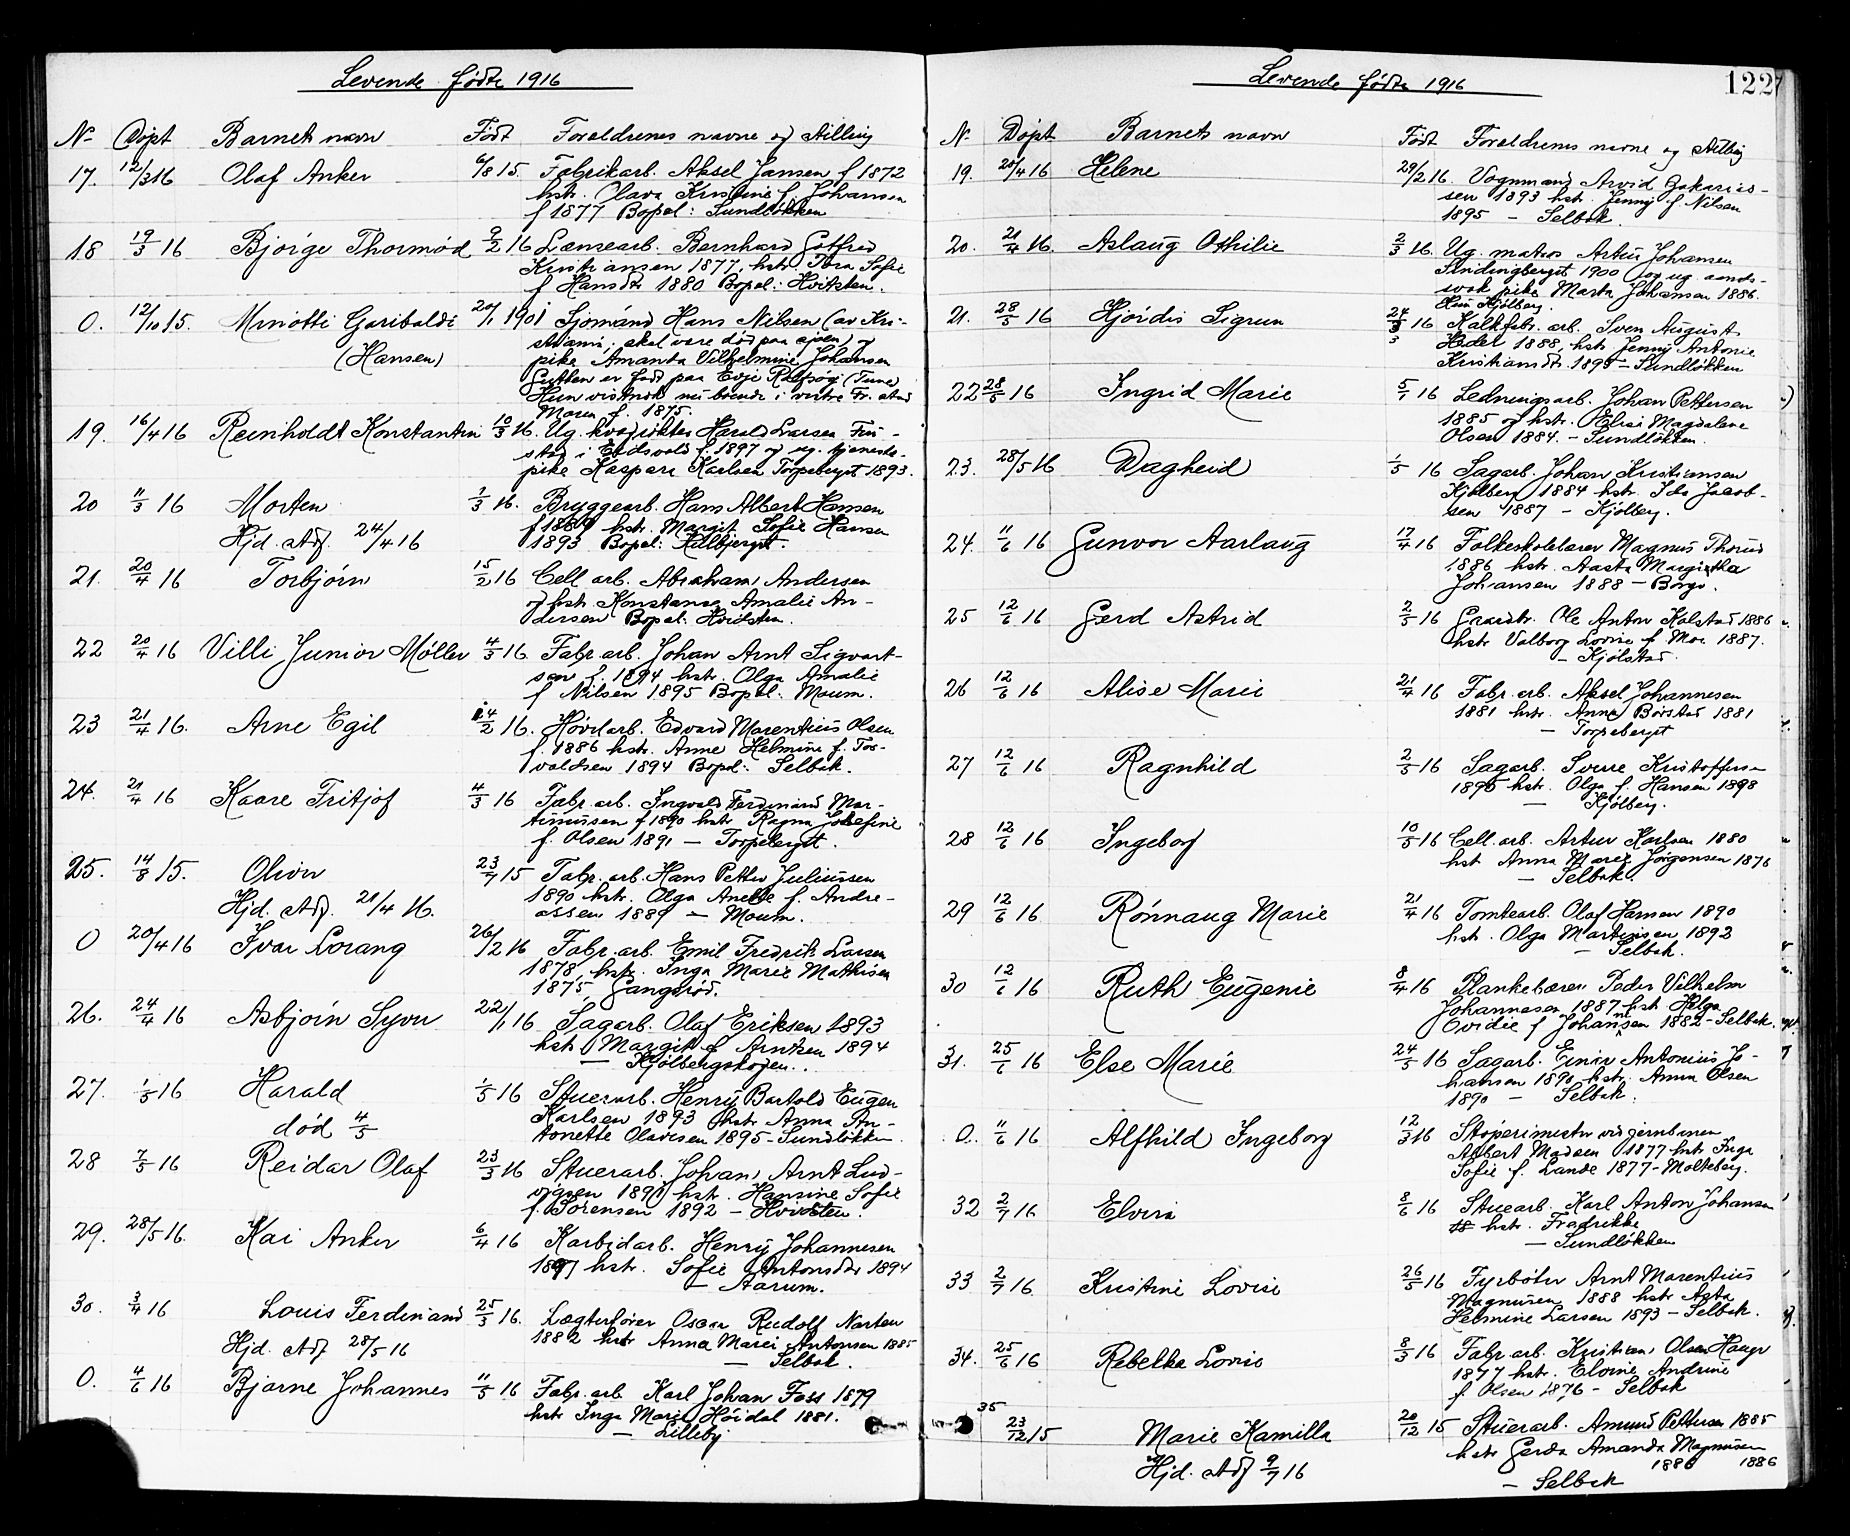 Levende födte 1916
N Döpt Barnets navn Födt Foreldrenes navne og stilling
17. 12/3 16 Olaf Anker 6/8 15. Fabrikarb. Aksel Jansen f 1872
hstr. Olava Kristine f. Johansen
f 1877 Bopel: Sundlökken
18 19/3 16 Bjorge Thormod 9/2 16 Lænsearb. Bernhard Gotfred
Kristiansen 1877, hstr. Tora Sofie
f Hansdtr 1880 Bopel: Hvitsten.
0. 12/10 15. Minotti Garibaldi 20/1 1901 Sjömand Hans Nilsen (av Kri-
(Hansen) stiania; skal være död paa sjöen) og
pike Amanda Vilhelmine Johansen
Gutten er född paa Evje (Tune)
Hun nu boende i vestre Fr. stad
Moren f. 1875.
19. 16/4 16 Reinholdt Konstantin 10/3 16. Ug. Harald Larsen Fin-
stad i Eidsvold f. 1897 og ug. tjeneste-
pike Kaspara Karlsen Torpeberget 1893.
20 11/3 16 Morten 7/3 16. Bryggearb. Hans Albert Hansen
Hjd. stdf. 24/4 16 f 1869 hstr. Margit Sofie Hansen
1893 Bopel:
21. 20/4 16 Torbjörn 15/2 16 Cell arb. Abraham Andersen
og hstr. Konstanse Amalie An-
dersen Bopel: Hvitsten.
22 20/4 16 Villi Junior Möller 4/3 16. Fabr. arb. Johan Arnt Sigvart-
sen f. 1894 hstr. Olga Amalie
f Nilsen 1895 Bopel: Moum.
23 21/4 16. Arne Egil 14/2 16. Hövdarb. Edvard Marentius Olsen
f. 1886 hstr. Anne Helmine f. Tor-
valdsen 1894 Bopel: Selbak.
24. 21/4 16 Kaare Fritjof 4/3 16 Fabr. arb. Ingvald Ferdinand Mar-
tinusen f 1890 hstr. Ragna Josefine
f. Olsen 1891 — Torpeberget.
25. 14/8 15. Oliver 23/7 15 Fabr. arb. Hans Petter Juliussen
Hjd. stdf. 21/4 16. 1890 hstr. Olga Anette f. Andre-
assen 1889 — Moum.
0 20/4 16 Ivar Lorang 26/2 16 Fabr. arb. Emil Fredrik Larsen
1878, hstr. Inga Marie Mathisen
1875 Gangsröd.
26. 24/4 16 Asbjörn Syver 22/1 16 Sagarb. Olaf Eriksen 1893
hstr. Margit f. Arntzen 1894
— Kjölbergskogen.
27. 1/5 16 Harald 1/5 16 Stuerarb. Henry Bartold Eugen
död 4/5 Karlsen 1893 hstr Anna An-
tonette Olavesen 1895 - Sundlökken
28 7/5 16 Reidar Olaf 23/3 16 Stuerarb. Johan Arnt Lud-
vigsen 1891 hstr. Hansine Sofie
f. Sörensen 1892 — Hvidsten.
29. 28/5 16. Kai Anker 6/4 16 Karbidarb. Henry Johannesen
1897 hstr. Sofie Antonsdtr 1894
— Aarum.
30. 3/4 16 Louis Ferdinand 25/3 16. Lægterförer Oscar Rudolf Narten
Hjd. stdf 28/5 16 1882 hstr Anna Marie Antonsen 1885
— Selbak.
0. 4/6 16 Bjarne Johannes 11/5 16 Fabr. arb Karl Johan Foss 1879
hstr Inga Marie Höidal 1881.
— Lilleby
Levende födte 1916
122
N. Döpt Barnets navn Födt Foreldrenes navne og stilling
19. 20/4 16 Helene 29/2 16. Vognmand Arvid Zakarias-
sen 1893 hstr. Jenny f Nilsen
1895 — Selbak.
20. 21/4 16. Aslaug Othilie 2/3 16. Ug. matros Artur Johansen
1900 og ug. aands-
svak pike Marta Johansen 1886.
Kjölberg.
21. 28/5 16 Hjördis Sigrun 24/3 16 Kalkfabr. arb. Sven August
Hedel 1888, hstr. Jenny Antonie
Kristiansdtr. 1895 — Sundlökken
22 28/5 16 Ingrid Marie 5/1 16 Ledningsarb. Johan Pettersen
1885 og hstr. Elise Magdalene
Olsen 1884. — Sundlökken.
23. 28/5 16 Dagheid 1/5 16 Sagarb. Johan Kristiansen
Kjölberg 1884 hstr. Ida Jacob-
sen 1887 — Kjölberg.
24. 11/6 16 Gunvor Aarlaug 17/4 16 Folkeskolelærer Magnus Thorud
1886 hstr. Aasta Margretha
Johansen 1888 — Borge.
25 12/6 16 Gerd Astrid 2/5 16 Gaardbr. Ole Anton Kolstad 1886
hstr Valborg Lovise f Moe 1887.
— Kjölstad.
26 12/6 16 Alise Marie 21/4 16 Fabr. arb. Aksel Johannesen
1881 hstr. Anna Börstad 1881
— Torpeberget
27 12/6 16 Ragnhild 2/5 16 Sagarb. Sverre Kristoffersen
1895 hstr. Olga f. Hansen 1898
— Kjölberg.
28 12/6 16 Ingeborg 10/5 16 Cell. arb. Artur Karlsen 1880
hstr Anna Marie Jörgensen 1876
— Selbak.
29 12/6 16 Rönnaug Marie 21/4 16 Tomtearb. Olaf Hansen 1890
hstr. Olga Martinsen 1892
— Selbak.
30 12/6 16 Ruth Eugenie 8/4 16 Plankebærer Peder Vilhelm
Johannesen 1887 hstr Helga
Ovidie f Johansen 1882 - Selbak.
31. 25/6 16 Else Marie 24/5 16 Sagarb. Einar Antonius Jo-
hansen 1890 hstr. Anna Olsen
1890 — Selbak.
0. 11/6 16 Alfhild Ingeborg 12/3 16 Stöperimester ved jernbanen
Albert Madsen 1877 hstr Inga
Sofie f. Lande 1877 - Molteberg.
32 2/7 16 Elvira 8/6 16 Stuearb. Karl Anton Johansen
hstr. Fredrikke
— Sundlökken
33 2/7 16 Kristine Lovise 26/5 16 Fyrböter Arnt Marentius
Magnusen 1888 hstr Asta
Helmine Larsen 1893 — Selbak.
34. 25/6 16 Rebekka Lovise 8/3 16 Fabr arb. Kristian Olsen Hauge
1877 hstr. Elvine Andrine
f. Olsen 1876 — Selbak
35 23/12 15 Marie Kamilla 20/12 15 Stuerarb. Amund Pettersen 1885
Hjd. stdf 9/7 16 hstr Gerda Amanda Magnusen
1886 1886
— Selbak